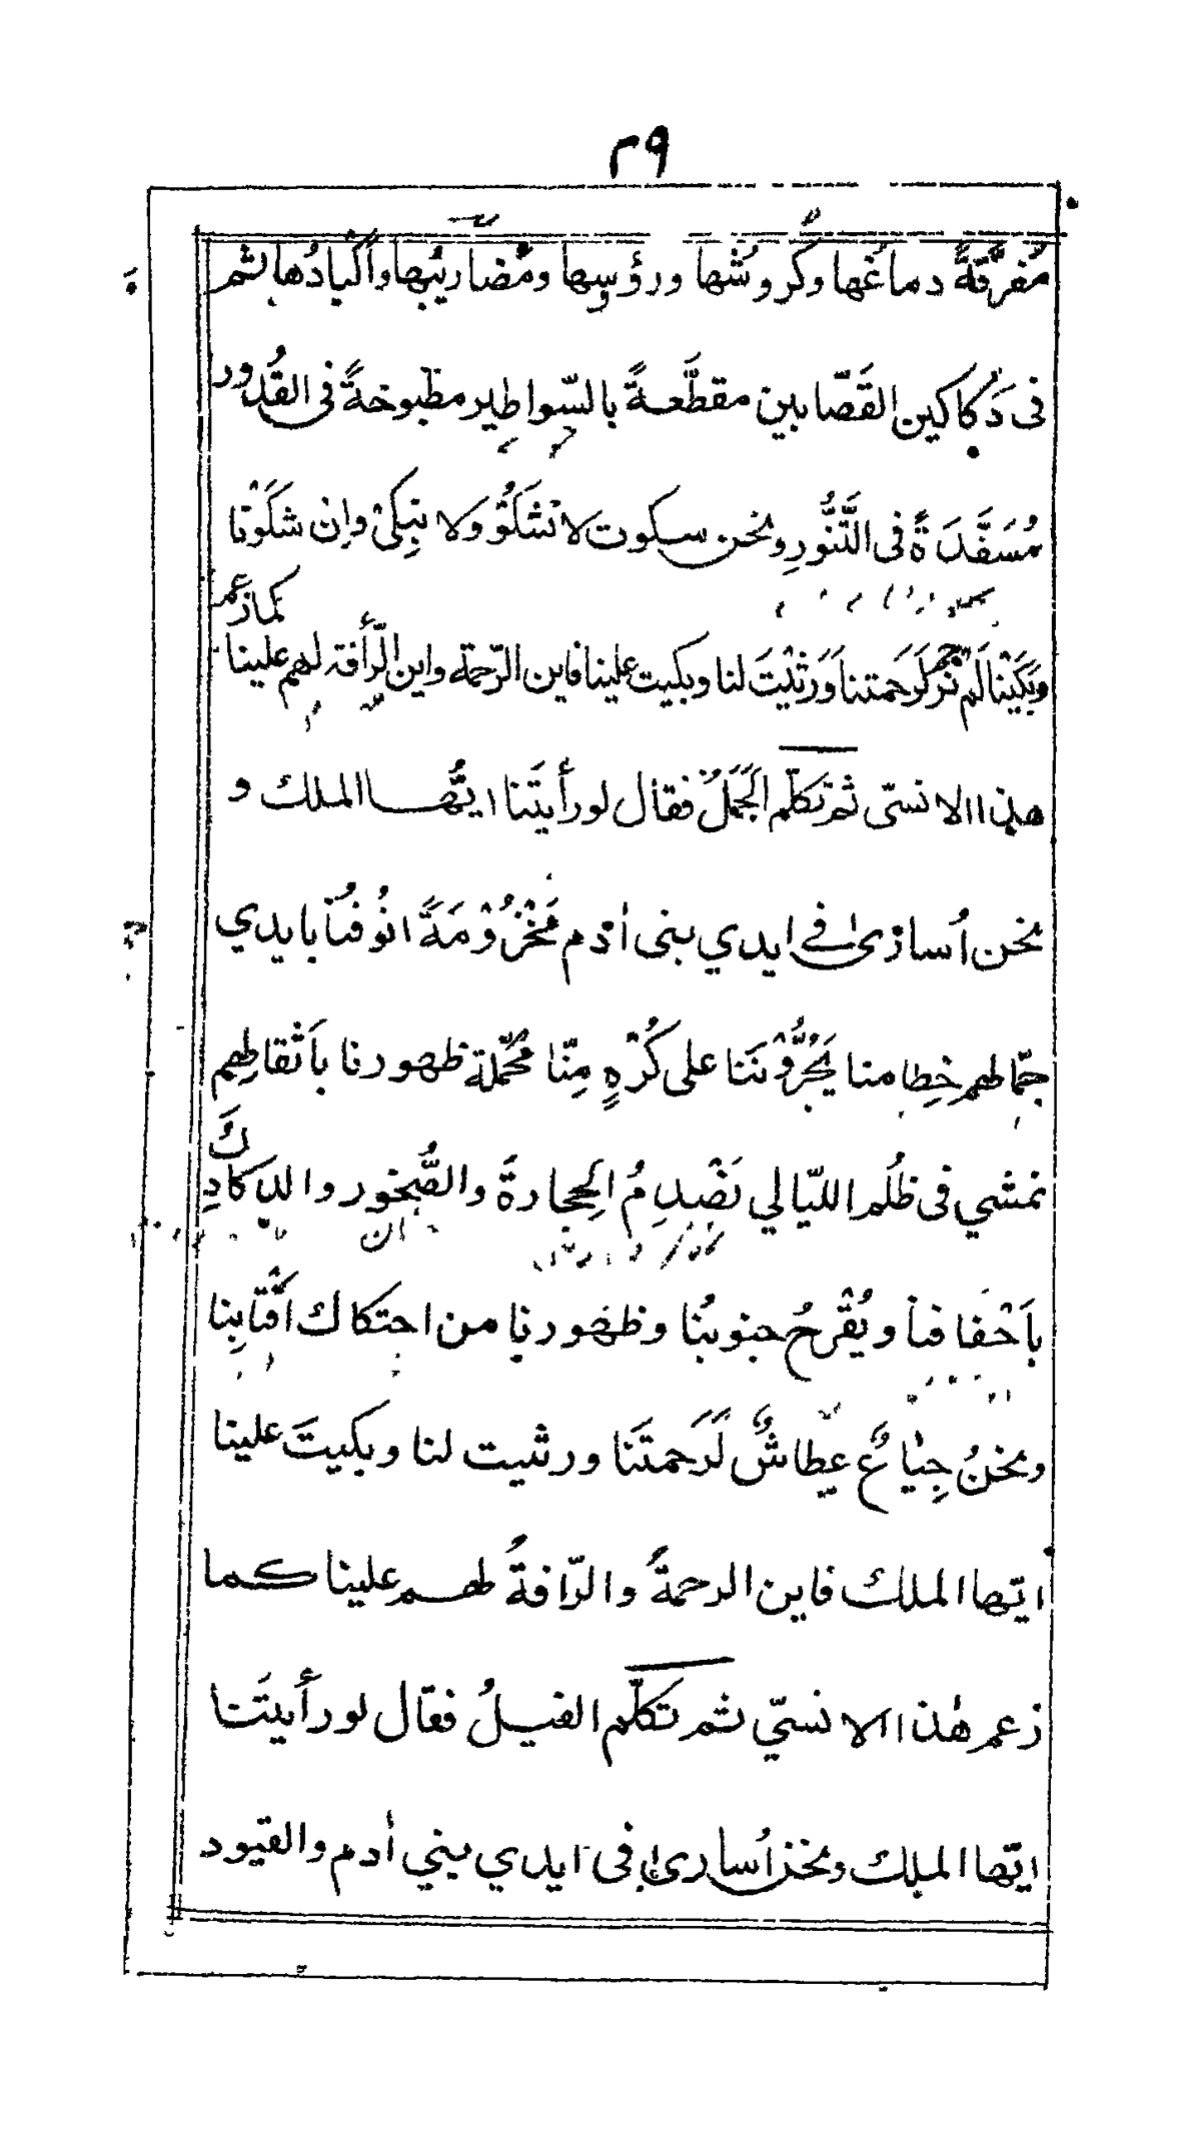 ٢٩
مُفرَّقةً دماغُها وكروشُها ورؤسِها ومُضاريُبها واكبادُها بثم
فى دَكاكين القَصّابين مقطَّعةً بالسّواطير مطبوخةً فى القُدور
مُسَفَّدَةً فى التَّنُّورِ ونحن سكوت لا نَشكُوْ ولا نبكِىْ وإن شكَوْنا
وبَكَيْنا لم نُرحم لَرَحَمتنا وَرَثَيْتَ لنا وبكيت علينا فاين الرّحمة واين الرّأفة لهم علينا كما زعم
هذا الانسىّ ثم تكلّم الجَمَلُ فقال لو رأيتَنا ايّها الملك و
نحن اُسارىٰ فے ايدي بنى اٰدم مَخْزُوْمَةً انُوفُنا بايدي
جمّالهم خِطامنا يَجُرُّوْنَنا على كُرْهٍ مِنّا محُمّلة ظهورنا باَثقالِهم
نمشي فى ظُلَم الليّالي نَصْدِمُ الحِجارةَ والصُّخور والدكادِكَ
باَخْفافنا ويُقْرحُ جنوبُنا وظهورنا من احتكاك اقتابِنا
ونحنُ جِيٰاعٌ عِطاشٌ لَرَحمتَنا ورثيت لنا وبكيتَ علينا
ايّها الملك فاين الرحمةُ والرّافةُ لهم علينا كما
زعم هٰذا الانسيّ ثم تكلّم الفيلُ فقال لو رأيتَنا
ايّها الملك ونحن اُسارىٰ فى ايدي بني اٰدم والقيود